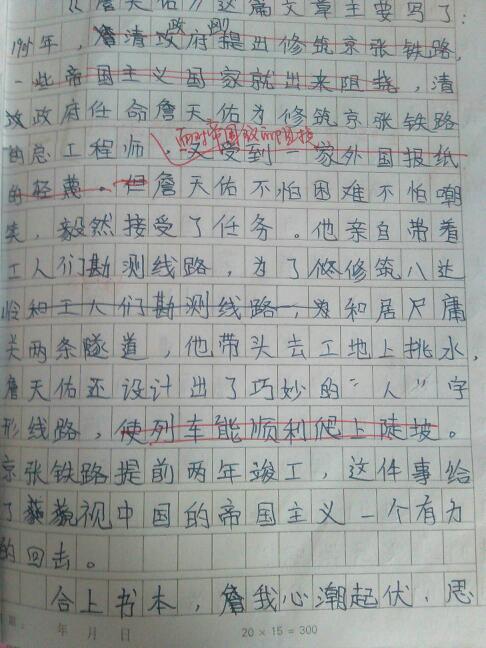 《詹天佑》这篇文章主要写了:
政府
1905年,詹清政府提出修筑京张铁路,
一些帝国主义国家就出来阻挠,清
政政府任命詹天佑为修筑京张铁路
面对帝国主义的阻挠
的总工程师,又受到一家外国报纸
的轻蔑。但詹天佑不怕困难不怕嘲
笑,毅然接受了任务。他亲自带着
工人们勘测线路,为了修筑八达
岭和工人们勘测线路,为和居庸
关两条隧道,他带头去工地上挑水,
詹天佑还设计出了巧妙的“人”字
形线路,使列车能顺利爬上陡坡。
京张铁路提前两年竣工,这件事给
了藐视中国的帝国主义一个有力
的回击。
合上书本,詹我心潮起伏,思
年 月 日
20 × 15 = 300